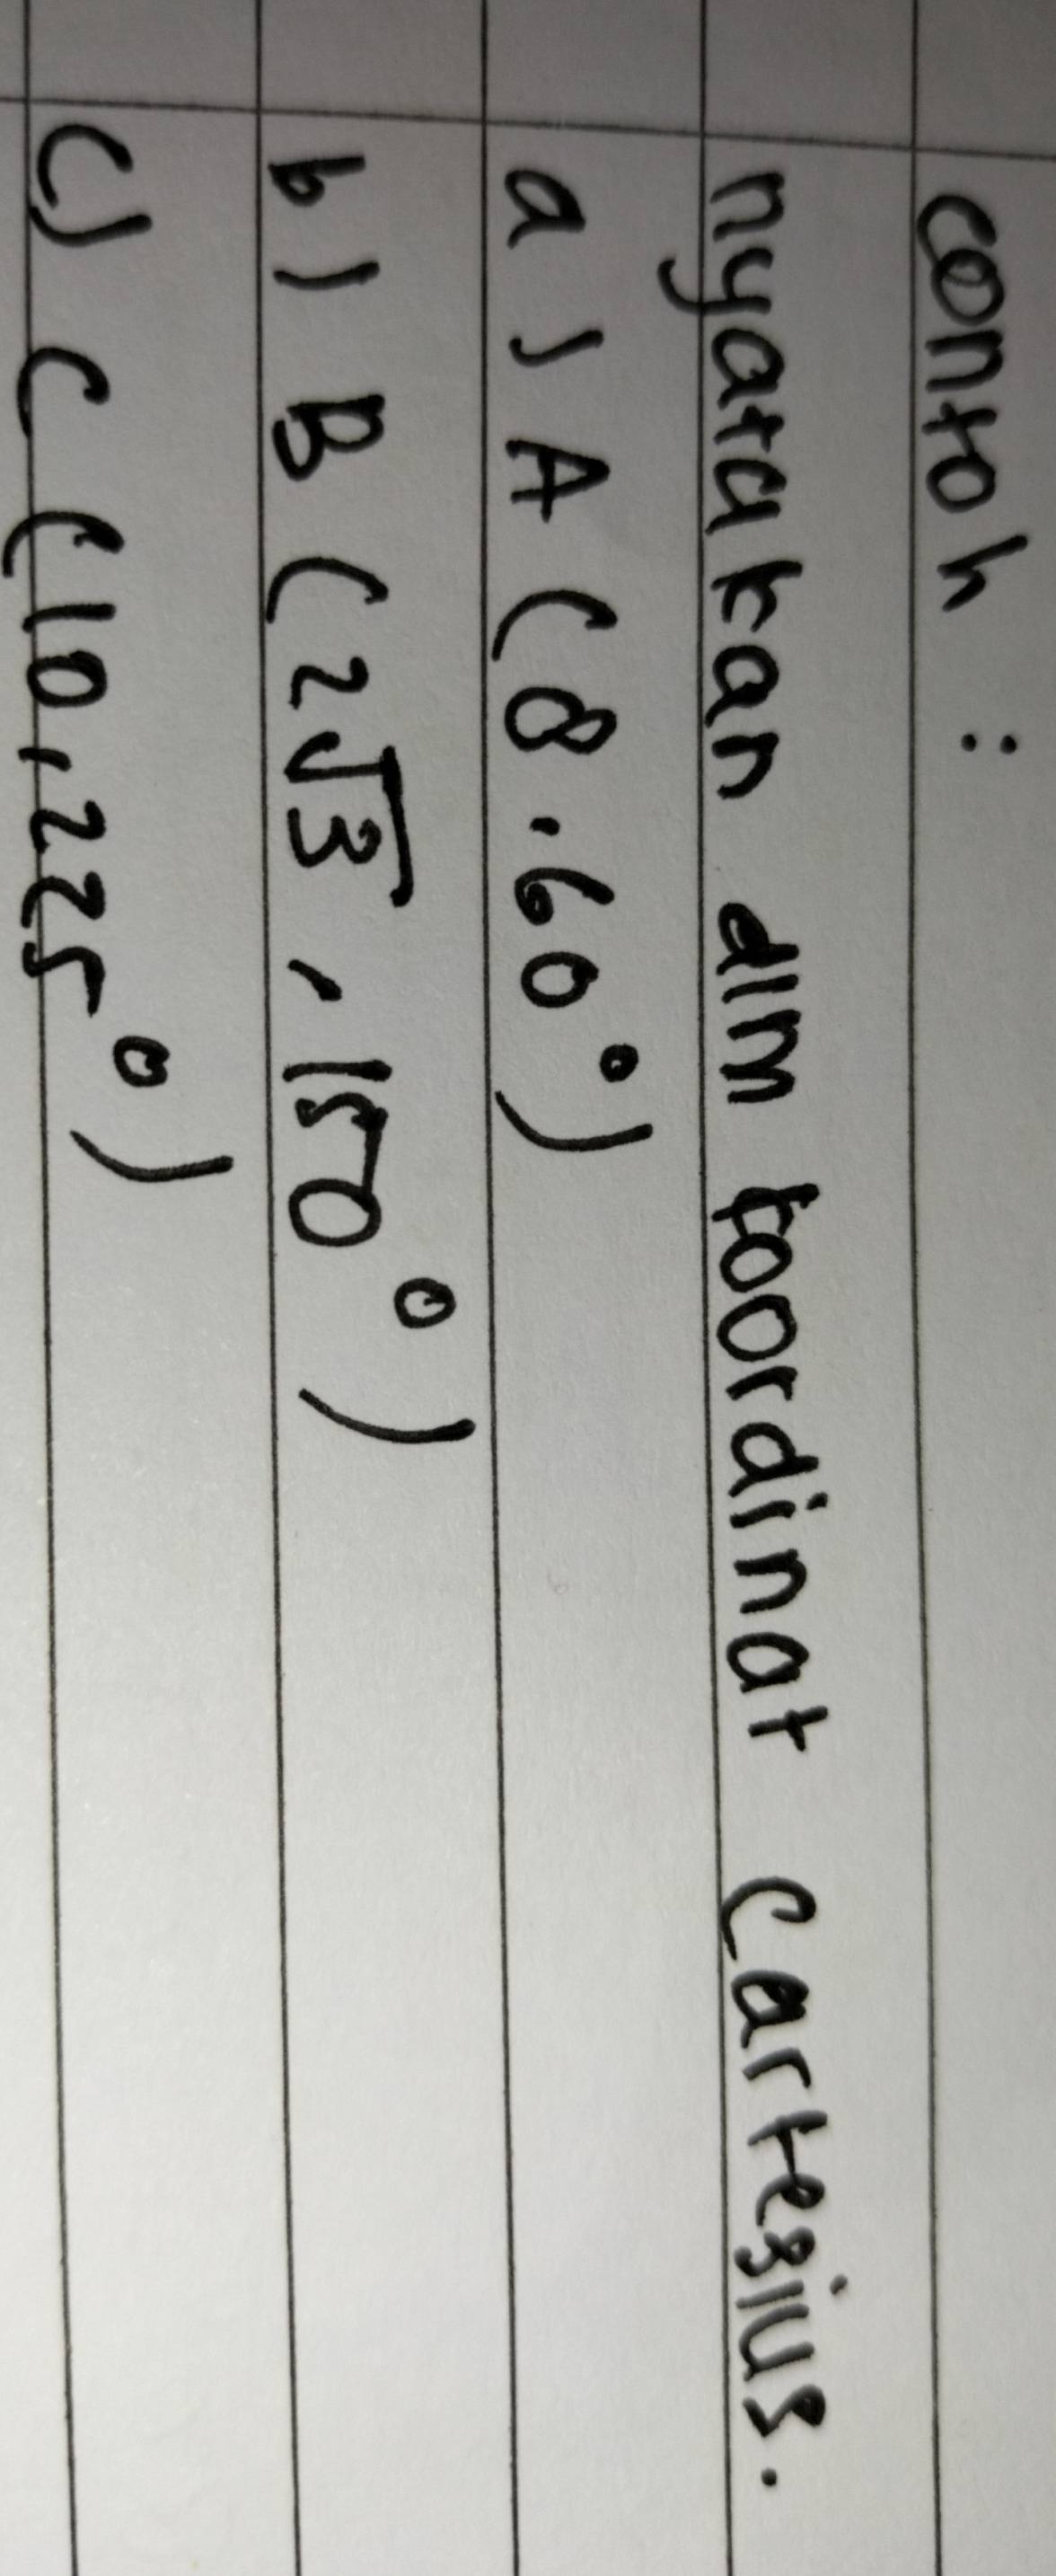 contoh :
nyatakan dlm koordinat Cartesius.
a) A (8 , 60°)
b) B (2√3 , 150°)
c) C (10, 225°)